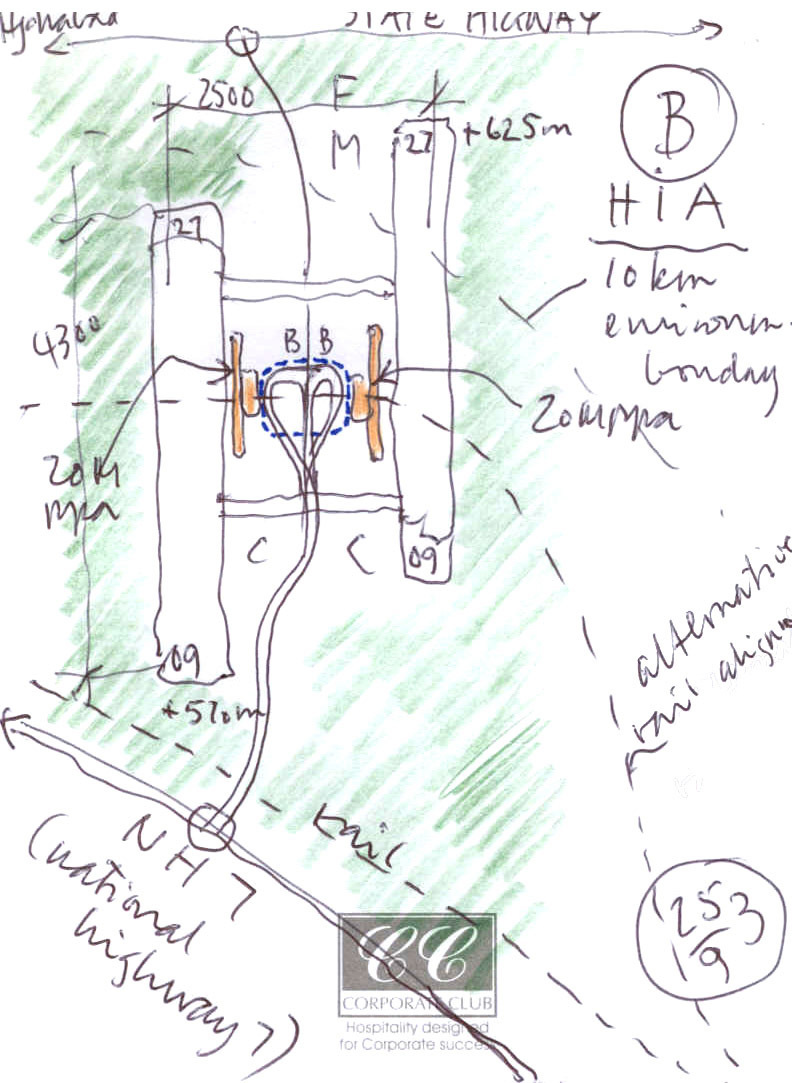 STATE HIGHWAY
2500
F
+625m
27
M
B
HiA
27
10 km
4300
B B
20Mppa
20M
mpa
C C
09
09
+570m
alternative
rail
rail
NH7
(national
highway 7)
253
19
CC
CORPORATE CLUB
Hospitality designed
for Corporate success